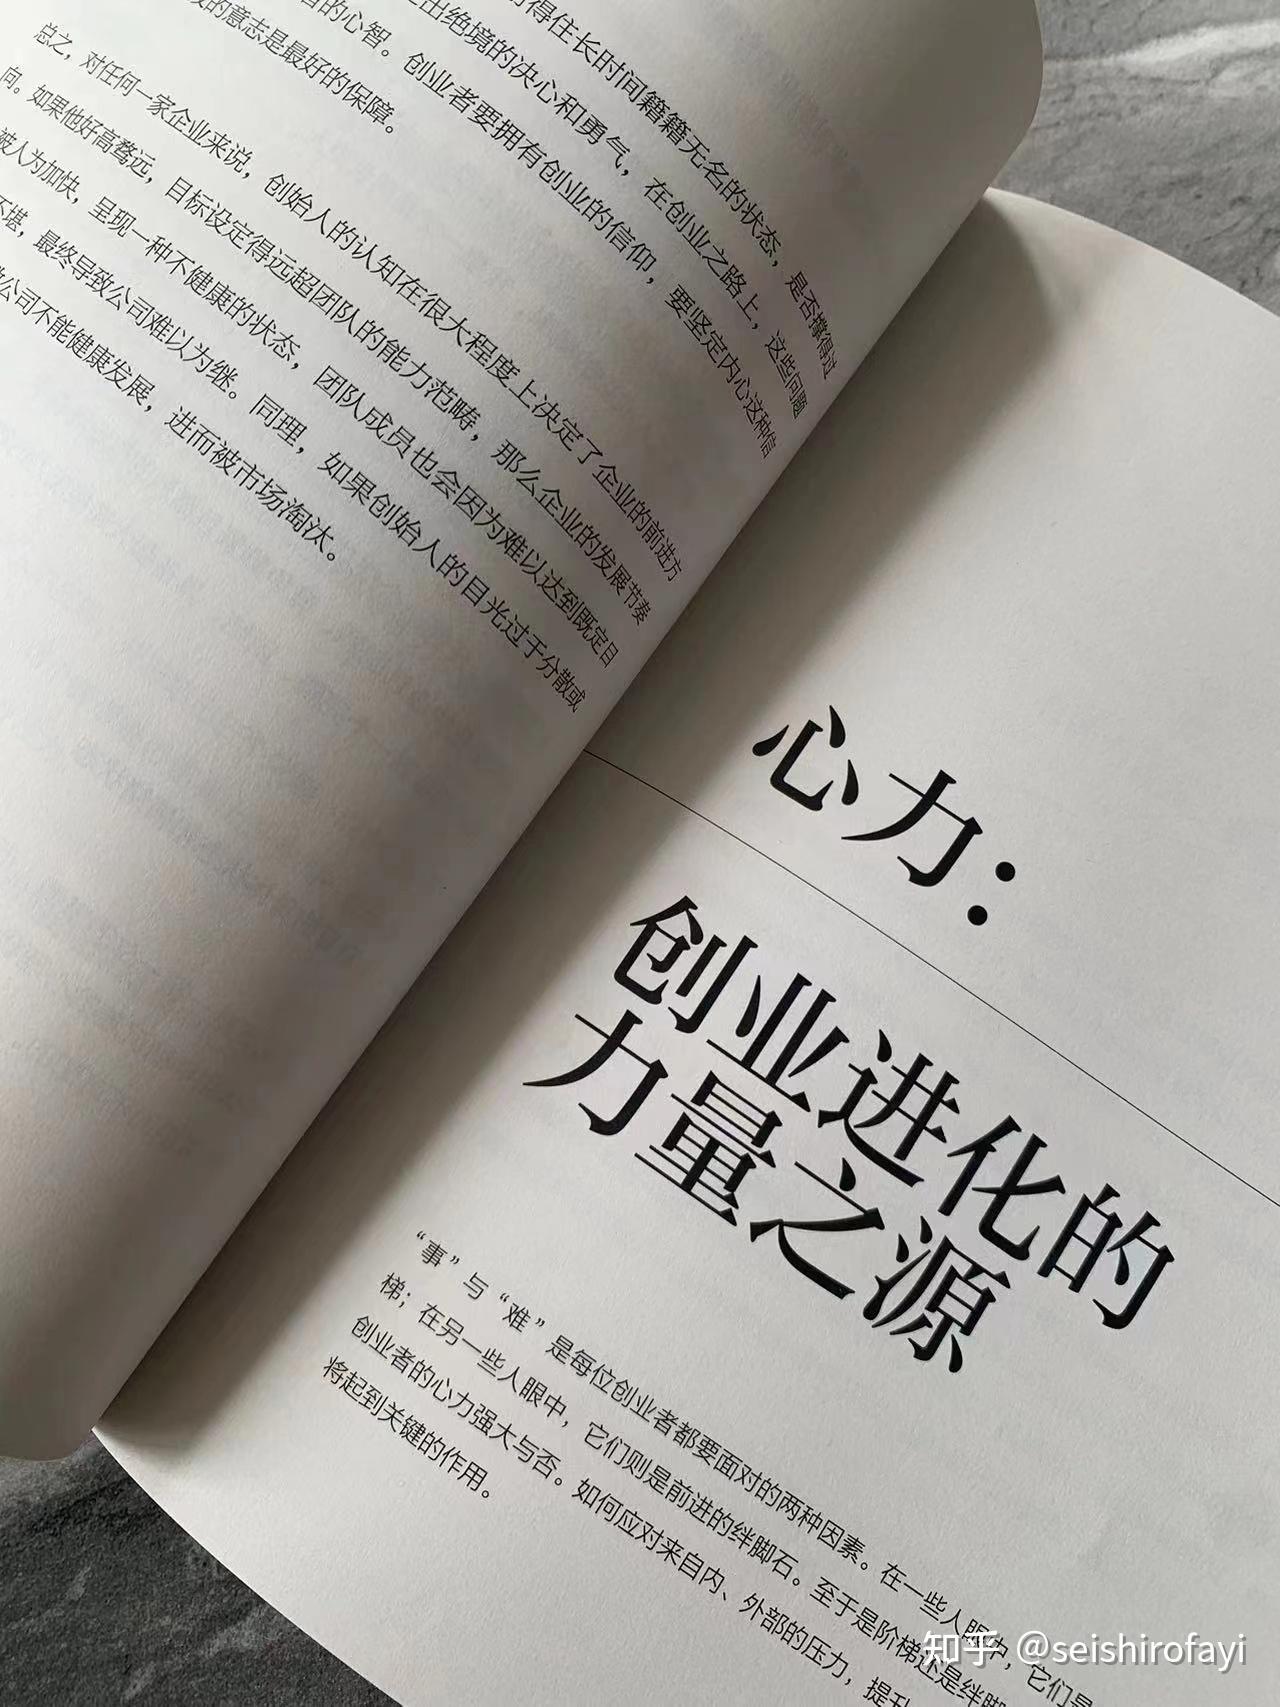 得住长时间籍籍无名的状态，是否撑得过
出绝境的决心和勇气，在创业之路上，这些问题
的心智。创业者要拥有创业的信仰，要坚定内心这种信
的意志是最好的保障。
总之，对任何一家企业来说，创始人的认知在很大程度上决定了企业的前进方
向。如果他好高骛远，目标设定得远超团队的能力范畴，那么企业的发展节奏
被人为加快，呈现一种不健康的状态，团队成员也会因为难以达到既定目
不堪，最终导致公司难以为继。同理，如果创始人的目光过于分散或
公司不能健康发展，进而被市场淘汰。
心力：
创业进化的
力量之源
“事”与“难”是每位创业者都要面对的两种因素。在一些人眼中，它们是
梯；在另一些人眼中，它们则是前进的绊脚石。至于是阶梯还是绊脚
创业者的心力强大与否。如何应对来自内、外部的压力，提升
将起到关键的作用。
知乎 @seishirofayi